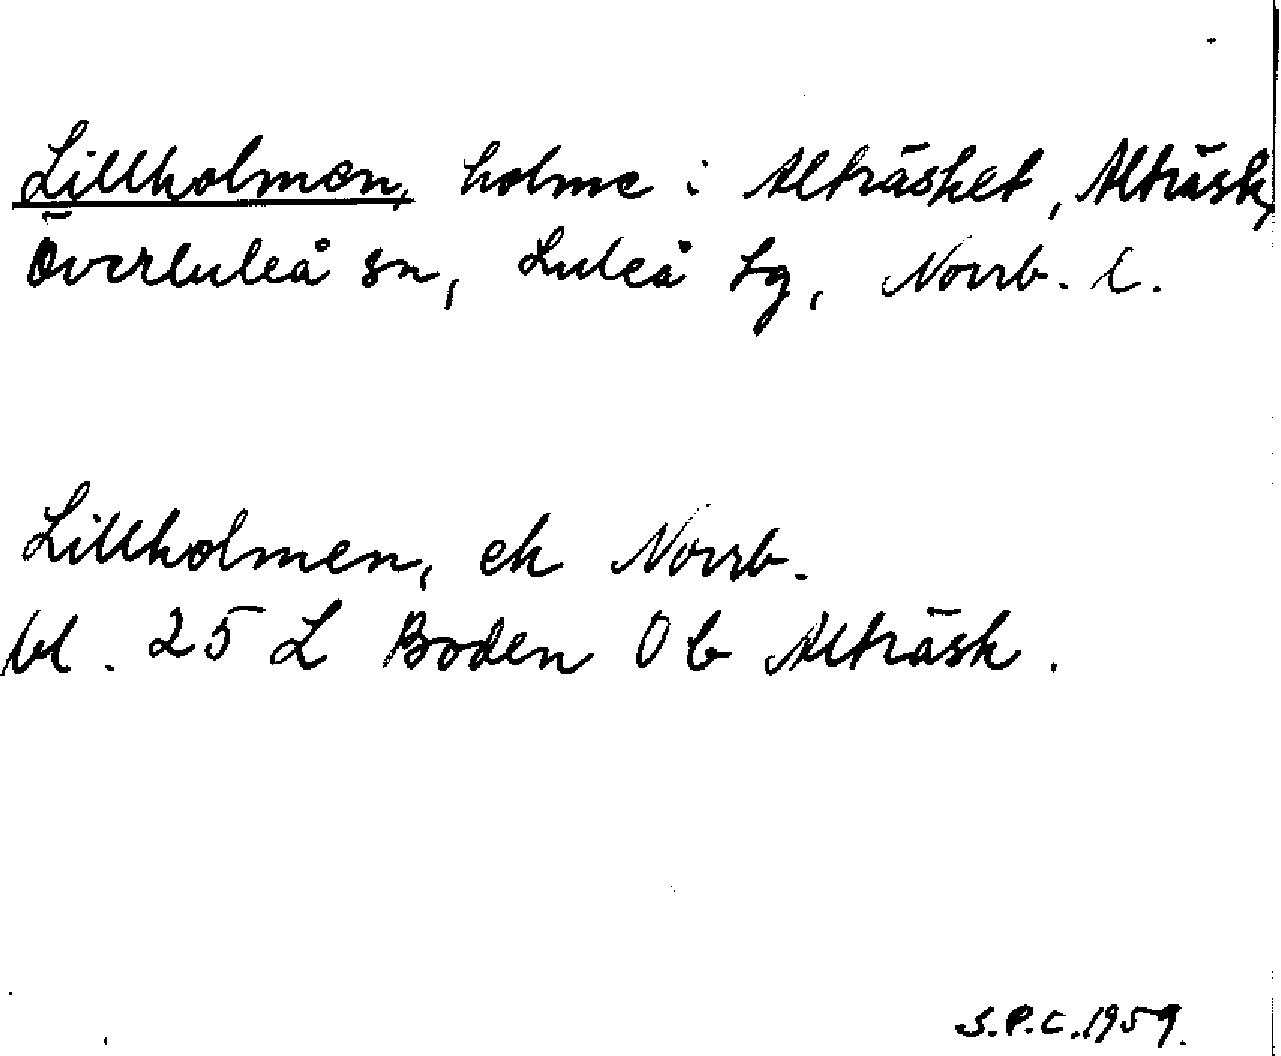 Lillholmen, holme i Alträsket, Alträsk,
Överluleå sn, Luleå tg, Norrb. l.
Lillholmen, ek Norrb.
bl. 25 L Boden Ob Alträsk.
S.P.C. 1959.